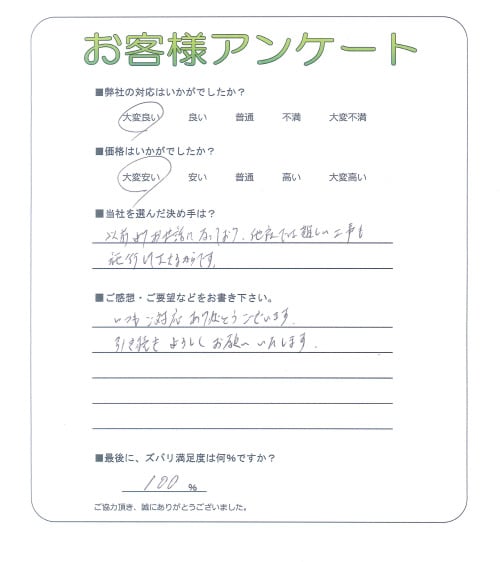 お客様アンケート
■弊社の対応はいかがでしたか？
大変良い 良い 普通 不満 大変不満
■価格はいかがでしたか？
大変安い 安い 普通 高い 大変高い
■当社を選んだ決め手は？
以前よりお世話になっており、他社では難しい工事も
施行して下さるからです。
■ご感想・ご要望などをお書き下さい。
いつもご対応ありがとうございます。
引き続きよろしくお願いいたします。
■最後に、ズバリ満足度は何％ですか？
100 ％
ご協力頂き、誠にありがとうございました。